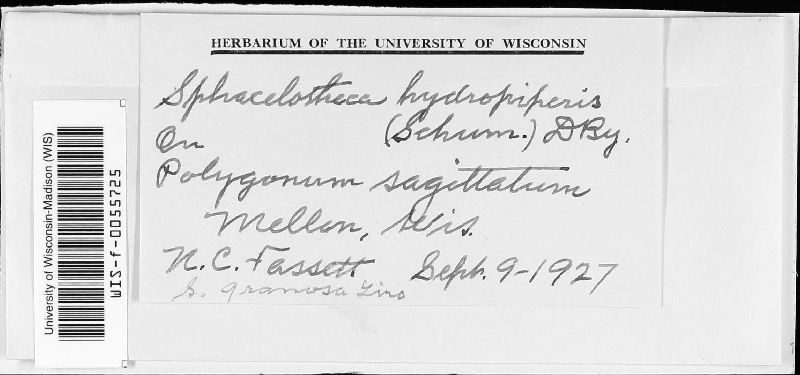 HERBARIUM OF THE UNIVERSITY OF WISCONSIN
Sphacelotheca hydropiperis
(Schum.) DBy.
On
Polygonum sagittatum
Mellen, Wis.
N.C. Fassett Sept. 9-1927
S. granosa Liro
University of Wisconsin-Madison (WIS)
WIS-f-0055725